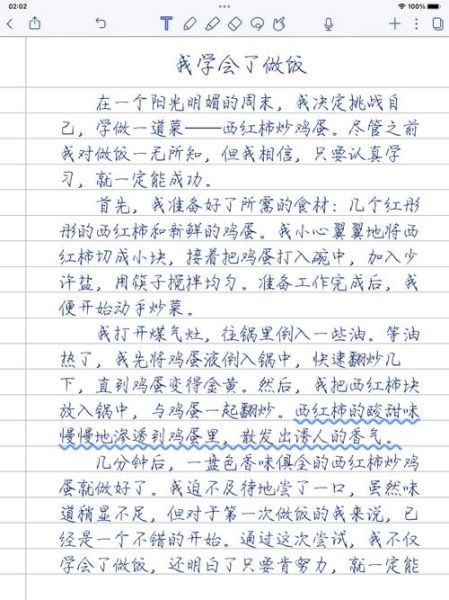 02:02
100%
T
我学会了做饭
在一个阳光明媚的周末，我决定挑战自
己，学做一道菜——西红柿炒鸡蛋。尽管之前
我对做饭一无所知，但我相信，只要认真学
习，就一定能成功。
首先，我准备好了所需的食材：几个红彤
彤的西红柿和新鲜的鸡蛋。我小心翼翼地将西
红柿切成小块，接着把鸡蛋打入碗中，加入少
许盐，用筷子搅拌均匀。准备工作完成后，我
便开始动手炒菜。
我打开煤气灶，往锅里倒入一些油。等油
热了，我先将鸡蛋液倒入锅中，快速翻炒几
下，直到鸡蛋变得金黄。然后，我把西红柿块
放入锅中，与鸡蛋一起翻炒。西红柿的酸甜味
慢慢地渗透到鸡蛋里，散发出诱人的香气。
几分钟后，一盘色香味俱全的西红柿炒鸡
蛋就做好了。我迫不及待地尝了一口，虽然味
道稍显不足，但对于第一次做饭的我来说，已
经是一个不错的开始。通过这次尝试，我不仅
学会了做饭，还明白了只要肯努力，就一定能